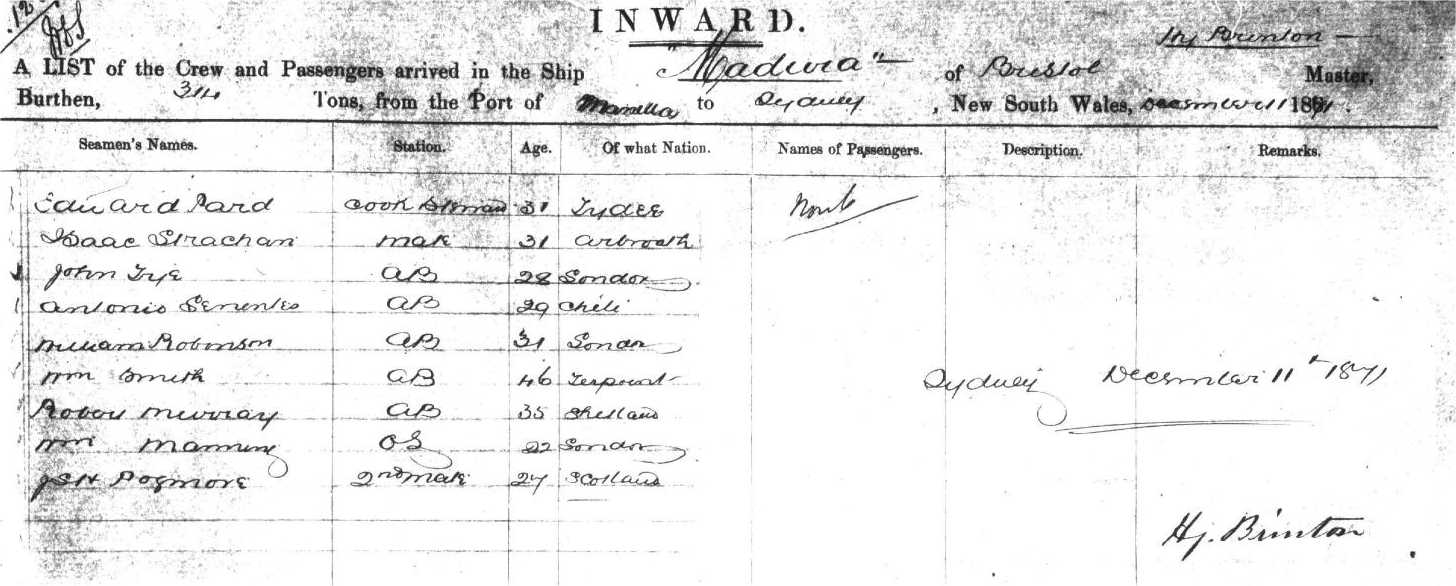 12
INWARD.
Hy Brinton
A LIST of the Crew and Passengers arrived in the Ship "Madura" of Bristol Master,
Burthen, 314 Tons, from the Port of Manella to Sydney, New South Wales, December 11 1871.
Seamen's Names. Station. Age. Of what Nation. Names of Passengers. Description. Remarks.
Edward Pard Cook Steward 31 None
Isaac Strachan Mate 31 Arbroath
John Tye AB 28 London
Antonio AB 29 Chili
William Robinson AB 31 London
Wm Smith AB 46
Sydney December 11th 1871
Robert Murray AB 35 Shetland
Wm Manning OS 22 London
Pogmore 2nd Mate 27 Scotland
Hy. Brinton